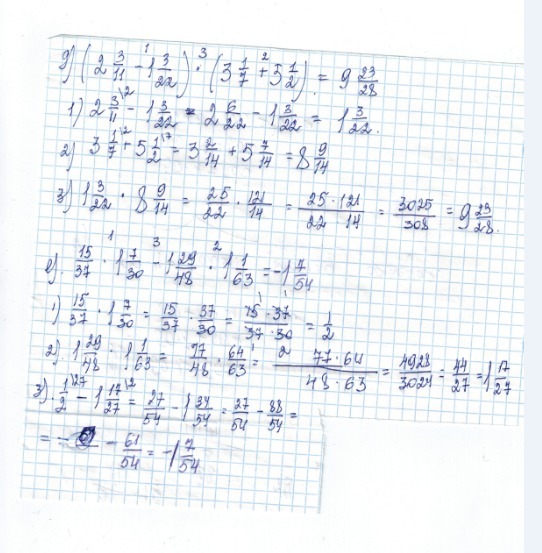 д) (2 3/11 - 1 3/22) · (3 1/7 + 5 1/2) = 9 23/28
1) 2 3/11 - 1 3/22 = 2 6/22 - 1 3/22 = 1 3/22.
2) 3 1/7 + 5 1/2 = 3 2/14 + 5 7/14 = 8 9/14
3) 1 3/22 · 8 9/14 = 25/22 · 121/14 = 25·121/22 14 = 3025/308 = 9 23/28.
е). 15/37 · 1 7/30 - 1 29/48 · 1 1/63 = -1 7/54
1) 15/37 · 1 7/30 = 15/37 · 37/30 = 15·37/37·30 = 1/2
2) 1 29/48 · 1 1/63 = 77/48 · 64/63 = 77·64/48·63 = 4928/3024 = 44/27 = 1 17/27
3). 1/2 - 1 17/27 = 27/54 - 1 34/54 = 27/54 - 88/54 =
= - 61/54 = -1 7/54